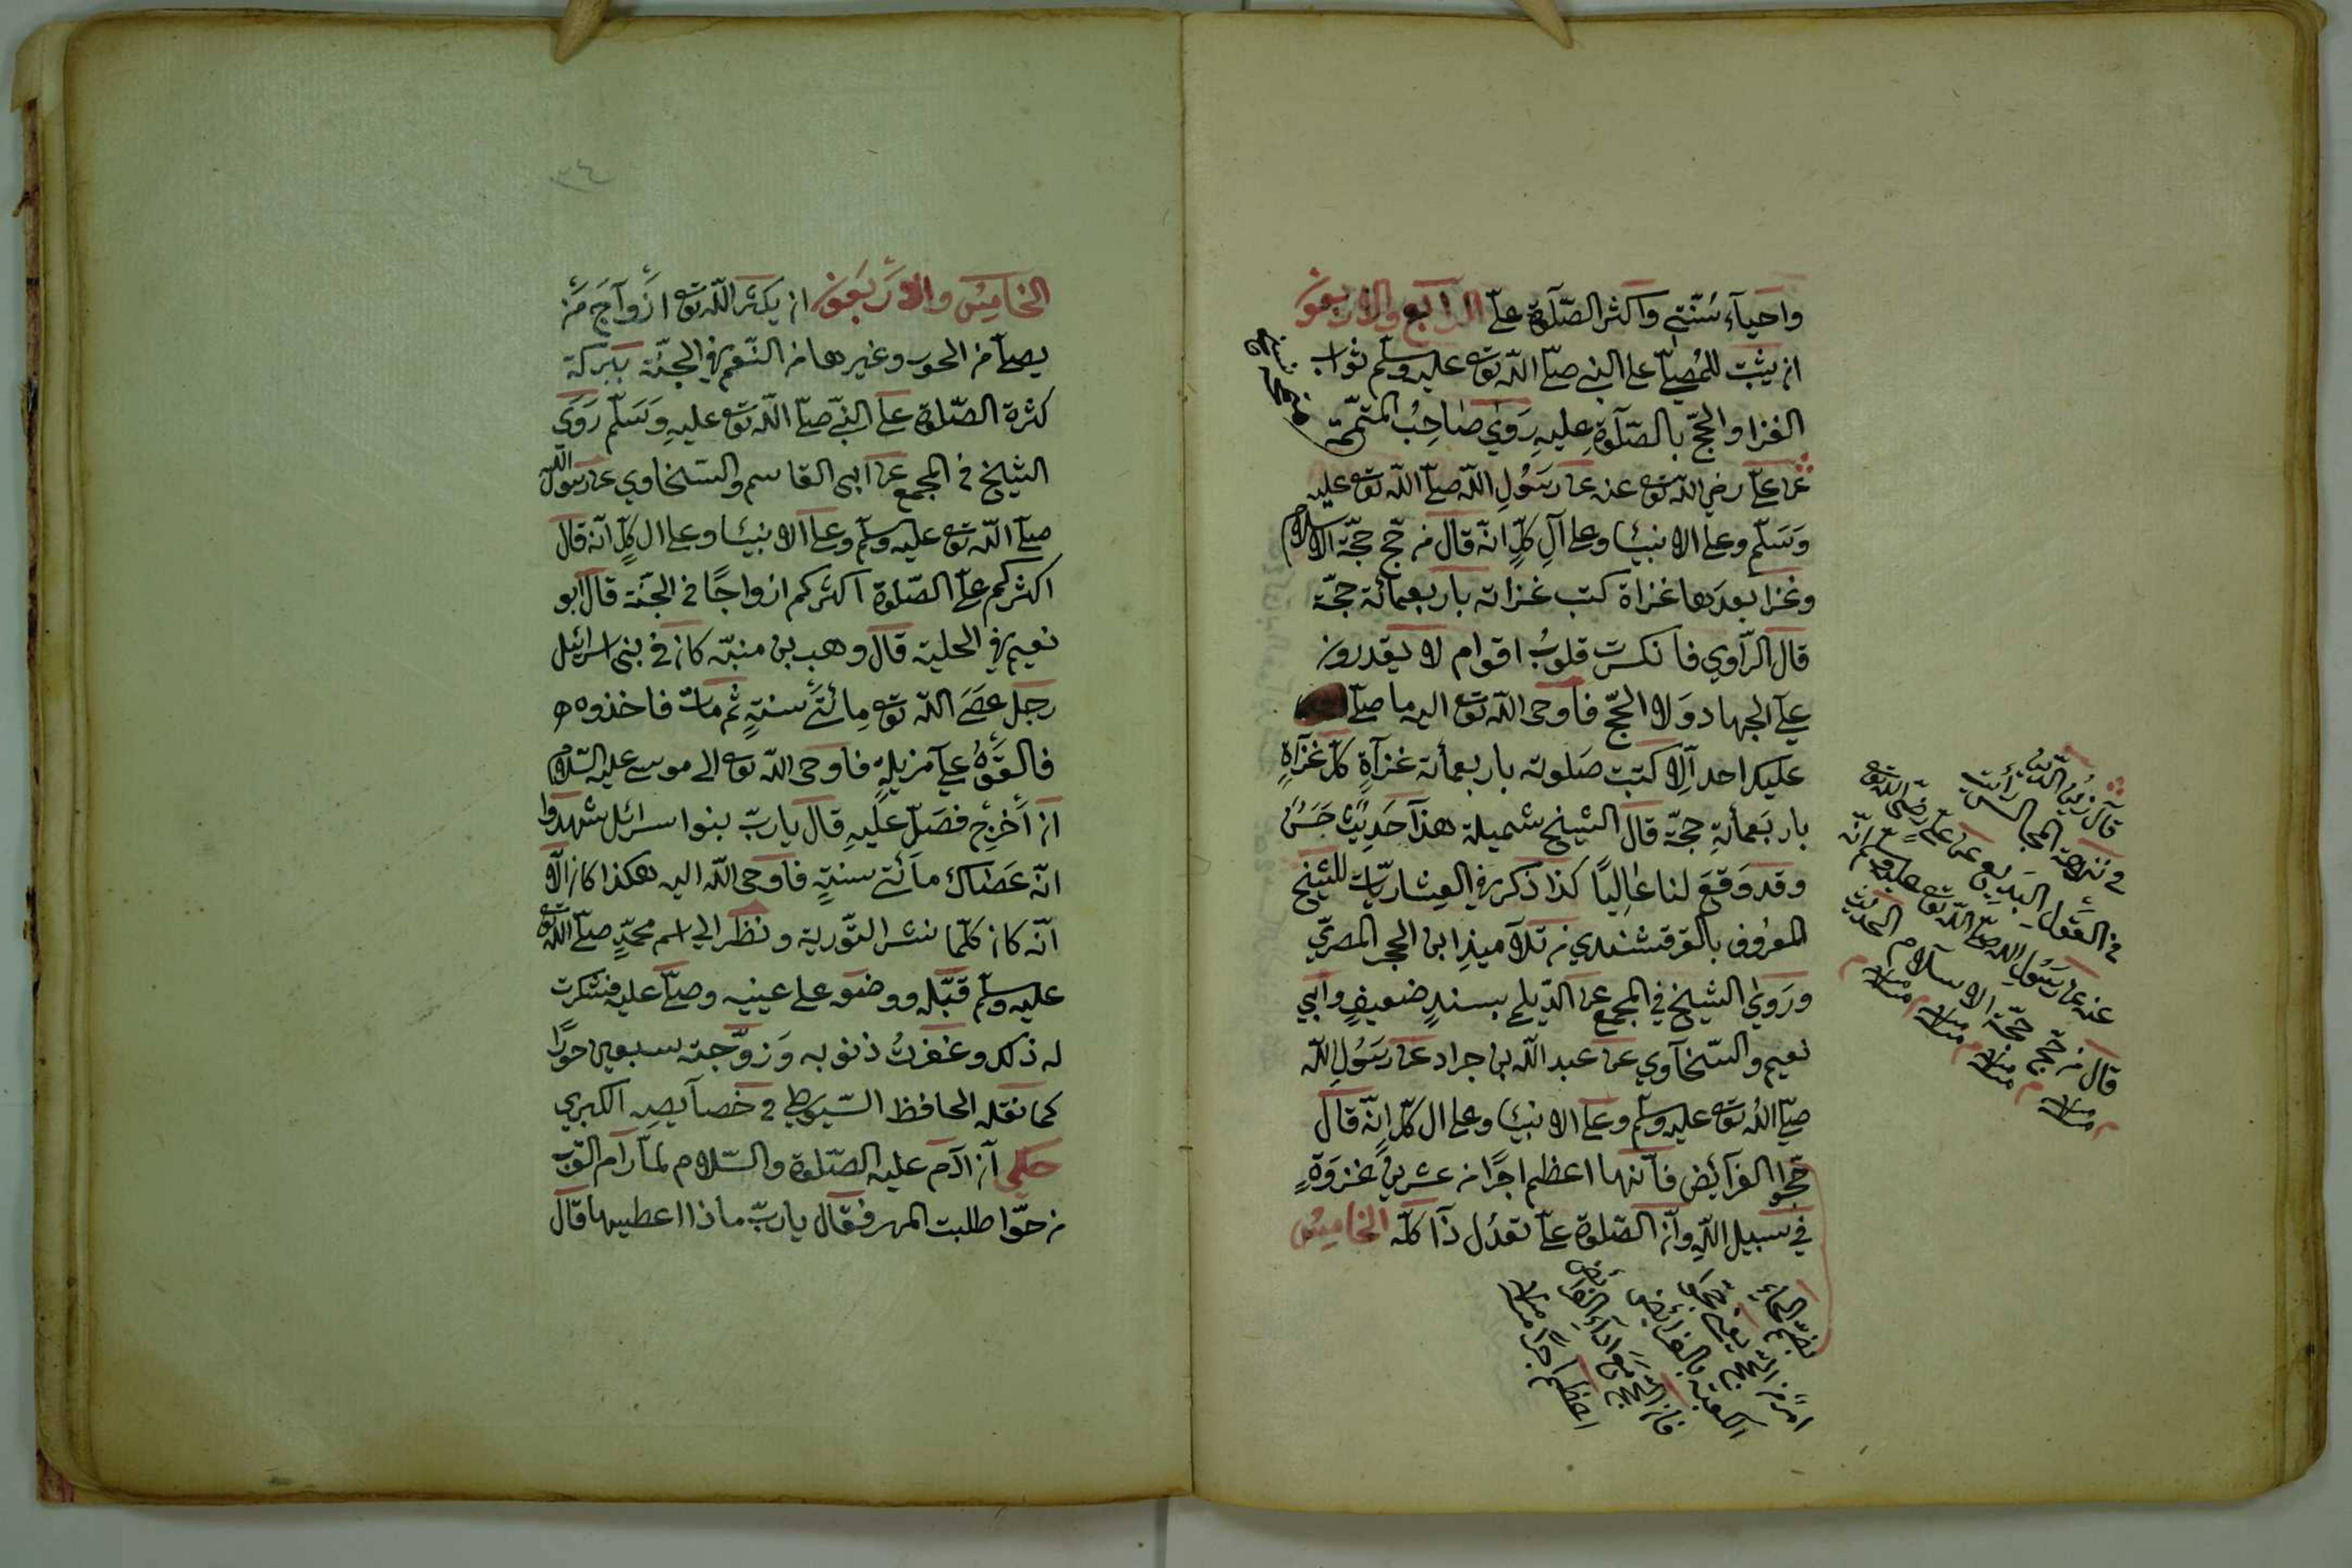 واحيآء سُنّتى واكثر الصّلٰوة علىّ الرابع والاربعون
ان يثبت للمُصلّى على النبى صلّى اللّٰه تعه عليه وسلّم ثواب
الغزا والحجّ بالصّلٰوة عليه رَوٰى صٰاحِبُ المتمّمة
عن علىّ رضى اللّٰه تعه عنه عن رسُولِ اللّٰه صلّى اللّٰه تعه عليه
وَسَلّم وعلى الانبيٰا وعلى آلِ كلٍّ انّه قال من حجّ حجّة الاسلام
وغزا بعدَها غزاة كتب غزاته باربعمائة حجّة
قال الرّاوي فانكسرت قلوبُ اقوام لا يقدرون
على الجهاد وَلا الحجّ فاوحى اللّٰه تعه اليه ما صلّى
عليك احد الّا كتبت صَلوته باربعمأئة غزآةٍ كلّ غزآةٍ
باربَعمأئةِ حجّة قال الشيخ شميلة هذا حَديث حَسَنٌ
وقد وَقعَ لنا عٰالِيًا كذا ذكر فى العِشاريّات للشيخ
المعرُوف بالقرقشندي من تلآميذِ ابن الحجر المصرىّ
ورَوٰى الشيخ في المجمع عن الدّيلمى بسندٍ ضعيفٍ وابي
نعيم والسّخآوي عن عبد اللّٰه بن جراد عن رسُولِ اللّٰه
صلّى اللّٰه تعه عليه وسلّم وعلى الانبيٰا وعلى ال كلّ انّه قال
حُجّوا الفرآئض فانّها اعظم اجرًا من عشرين غزوَةٍ
في سبيل اللّٰه وانّ الصّلوة علىّ تعدُل ذا كلّه الخاميس
قال زينُ الدّين
في نزهة المجالس رأيت
فى القول البديع عن علىّ رضى اللّٰه تعه
عنه عن رسُولِ اللّٰه صلّى اللّٰه تعه عليه وسلّم انّه
قال من حجّ حجّة الاسلام الحديث
بضمّ الحآءِ
امرٌ من الحجّ يعنى حجّوا
الكعبة بالفرائض
فانّ الحجّ مَع ادآء الفرائض
اعظم اجرًا
٣٤
الخاميس والاربَعون ان يكثر اللّٰه تعه ازوآجَ مَن
يصلّى من الحور وغيرها من النّعم فى الجنّة ببركة
كثرة الصّلوة على النبىّ صلّى اللّٰه تعه عليهِ وَسَلّم رَوَى
الشيخ فى المجمع عن ابى القاسم والسّخاوي عن رسول اللّٰه
صلّى اللّٰه تعه عليه وسلّم وعلى الانبيٰا وعلى ال كلٍّ انّه قال
اكثركم علىّ الصّلوة اكثركم ازواجًا فى الجنّة قال ابو
نعيم فى الحلية قال وهب بن منبّه كان فى بنى اسرائيل
رجل عَصَى اللّٰه تعه مِائتَى سنةٍ ثم مات فاخذوه
فالقَوْهُ على مزبلةٍ فاوحى اللّٰه تعه الى موسى عليه السّلام
ان أخرِج فصَلّ عليهِ قال يا ربّ بنوا سرائل شهدوا
انّه عَصٰاك مائتى سنةٍ فاوحى اللّٰه اليه هكذا كان الّا
انّه كان كلّما نشر التّورية ونظر الى اسم محمّدٍ صلّى اللّٰه تعه
عليه وسلّم قبّله ووضعه على عينيه وصلّى عليه فشكرت
له ذلك وغفرتُ ذنوبه وَزوّجته سبعين حورًا
كما نقله الحافظ السّيوطى فى خصآيصه الكبري
حكى انّ آدم عليه الصّلوة والسّلام لمّا رام القرب
من حوّا طلبت المهر فقال يا ربّ ماذا اعطيها قال